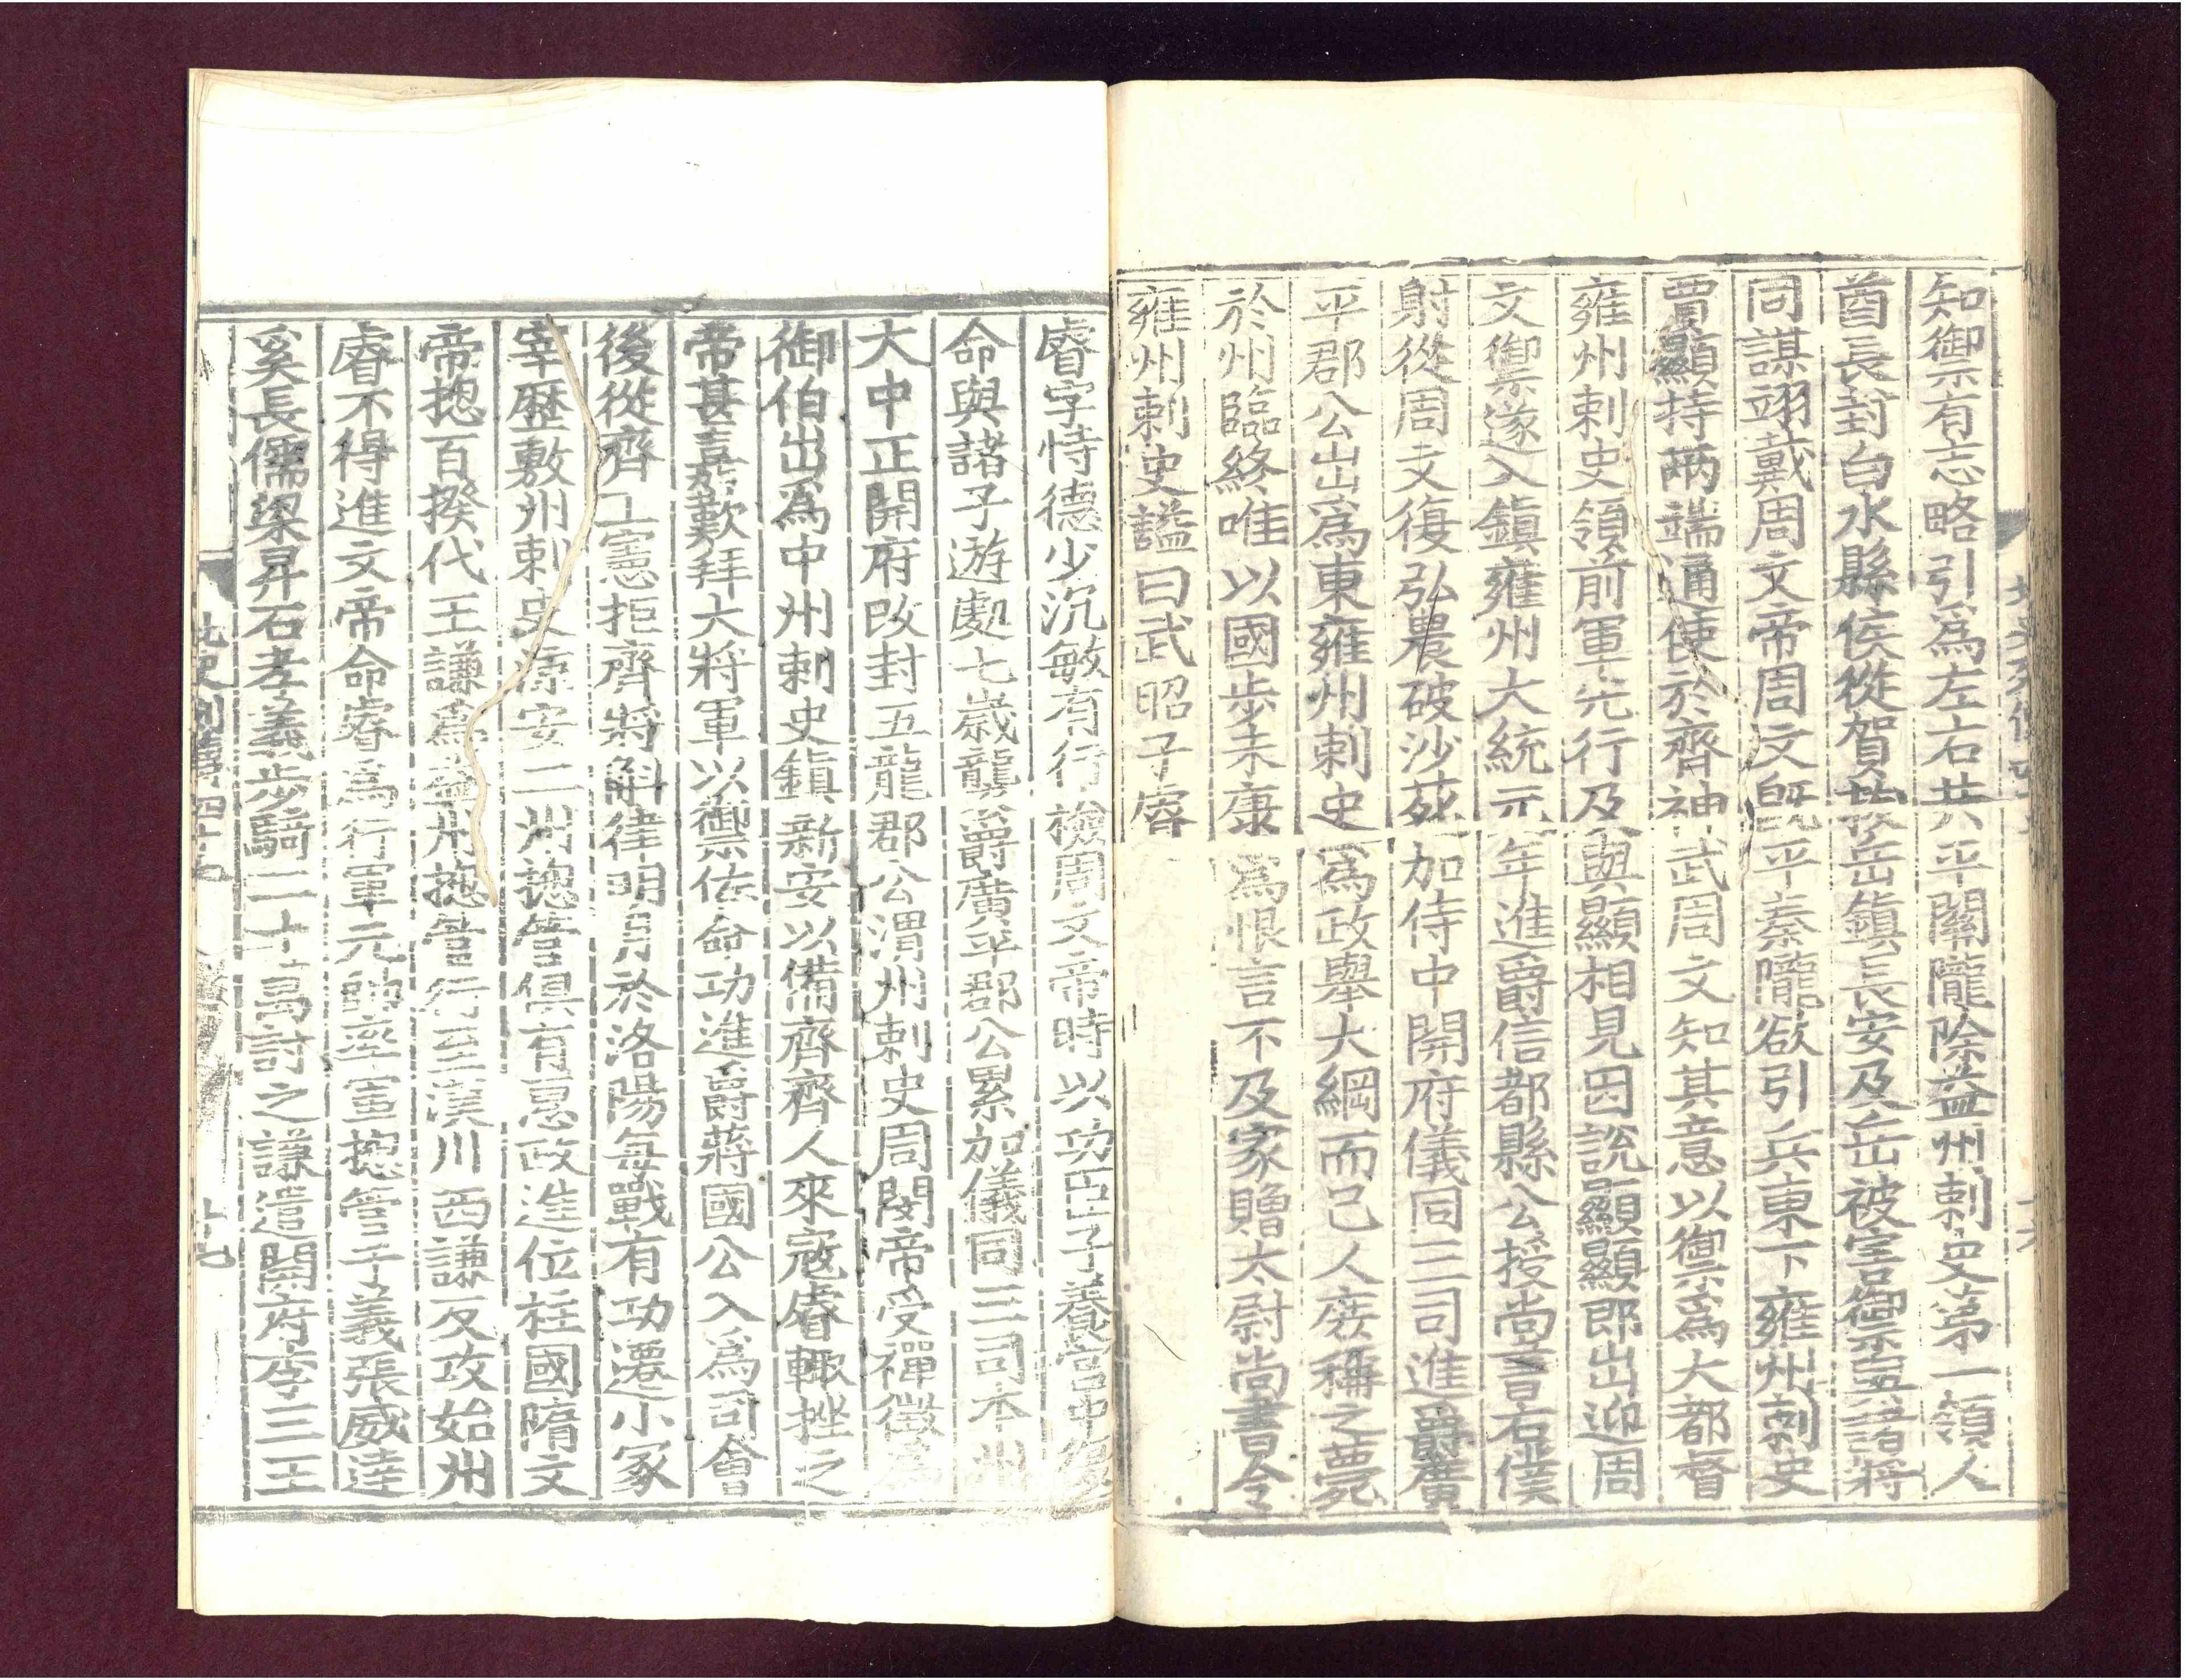 知御示有志略引爲左右共平關隴除益州刺史第一領人
酋長封白水縣侯從賀拔岳鎮長安及岳被害御與諸將
同謀翊戴周文帝周文既平秦隴欲引兵東下雍州刺史
賈顯持兩端通使於齊神武周文知其意以禦爲大都督
雍州刺史領前軍先行及與顯相見因說顯顯即出迎周
文禦遂入鎮雍州大統元年進爵信都縣公授尚書右僕
射從周文復弘農破沙苑加侍中開府儀同三司進爵廣
平郡公出爲東雍州刺史爲政舉大綱而已人庶稱之薨
於州臨終唯以國步未康爲恨言不及家贈太尉尚書令
雍州刺史謚曰武昭子睿
睿字恃德少沉敏有行檢周文帝時以功臣子養宮中復
命與諸子遊處七歲襲爵廣平郡公累加儀同三司本州
大中正開府改封五龍郡公渭州刺史周閔帝受禪徵爲
御伯出爲中州刺史鎮新安以備齊齊人來寇睿輙挫之
帝甚嘉歎拜大將軍以禦佐命功進爵蔣國公入爲司會
後從齊王憲拒齊將斛律明月於洛陽每戰有功遷小冢
宰歷敷州刺史涼安二州摠管俱有惠政進位柱國隋文
帝摠百揆代王謙爲益州摠管行至漢川西謙反攻始州
睿不得進文帝命睿爲行軍元帥率軍摠管于義張威逹
奚長儒梁昇石孝義步騎二十萬討之謙遣開府李三王
北史列傳四十七
十七